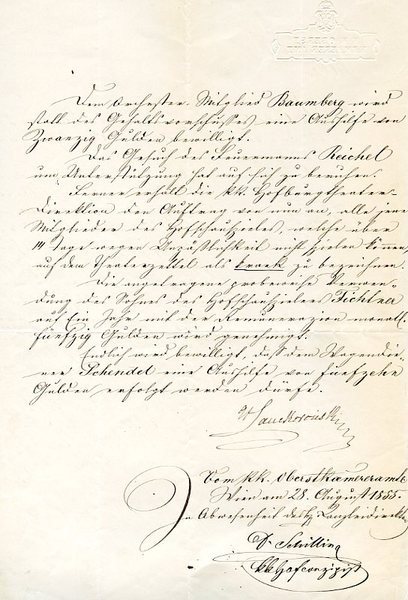 Dem Orchester-Mitglied Baumberg wird
statt des Gehaltsvorschusses eine Aushilfe von
Zwanzig Gulden bewilligt.
Das Gesuch des Feuermanns Reichel
um Unterstützung hat auf sich zu beruhen.
Ferner erhält die kk. Hofburgtheater-
Direktion den Auftrag von nun an, alle jene
Mitglieder des Hofschauspieles, welche über
14 Tage wegen Unpäßlichkeit nicht spielen können,
auf dem Theaterzettel als krank zu bezeichnen.
Die angetragene probeweise Verwen-
dung des Sohnes des Hofschauspielers Fichtner
auf Ein Jahr mit der Remunerazion monatl.
fünfzig Gulden wird genehmigt.
Endlich wird bewilligt, daß dem Wagendie-
ner Schindel eine Aushilfe von fünfzehn
Gulden, erfolgt werden dürfe.
Lanckoroński
Vom kk. Oberstkämmereramte
Wien am 28. August 1855.
In Abwesenheit des H. Kanzleidirektors
Schilling
kk Hofconzipist